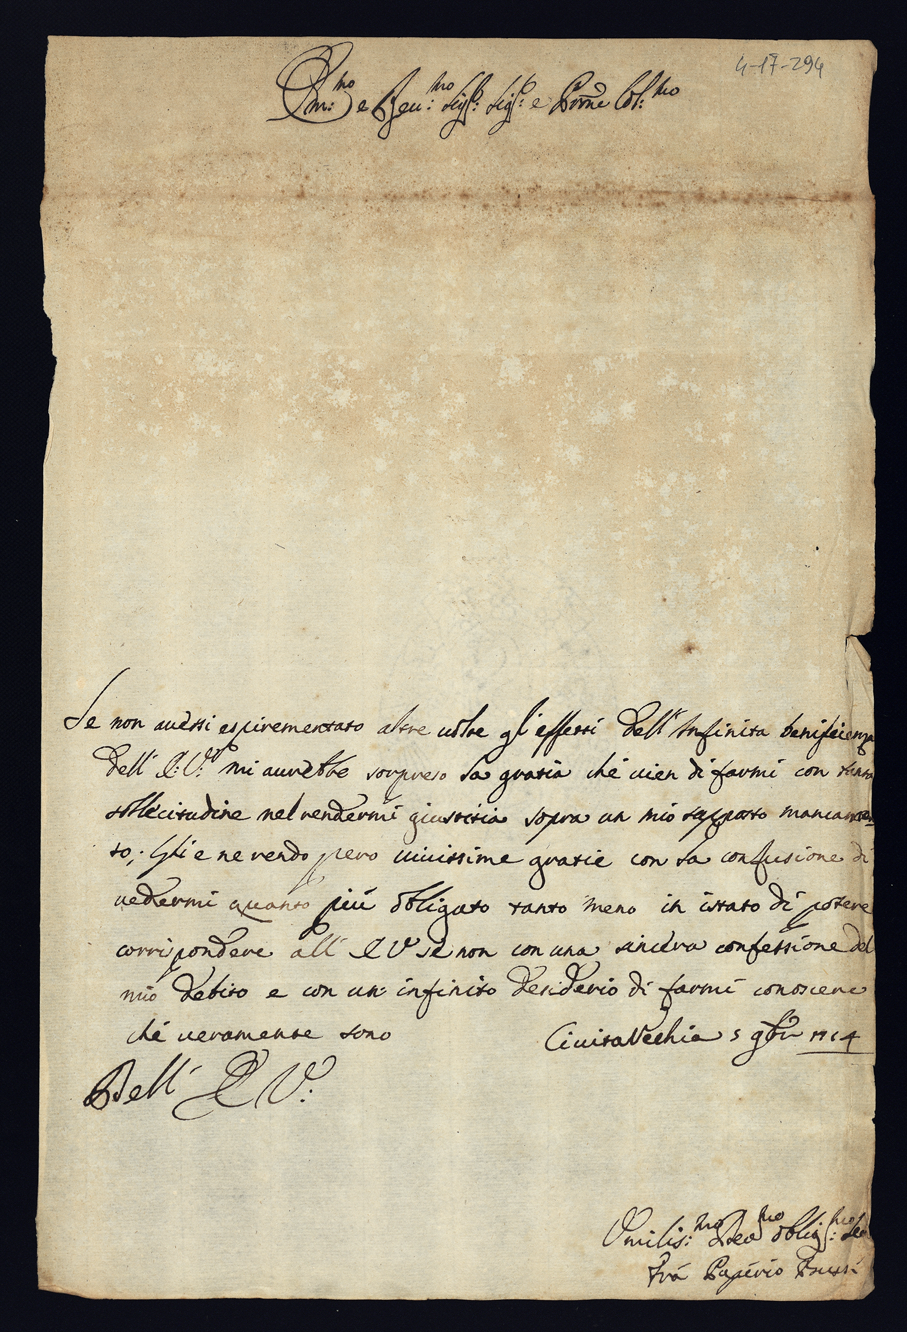 4-17-294
Em:mo e Reu:mo Sig:r Sig:r e Prõne Col:mo
Se non auessi espirementato altre uolte gl'effetti dell'Infinita benificienza
dell' E: V: mi aurebbe sorpreso la gratia ché uien di farmi con tanta
sollecitudine nel rendermi giustitia sopra un mio rapporto mancamen=
to; Gli e ne rendo pero uiuissime gratie con la confusione di
uedermi quanto piú obligato tanto meno in istato di potere
corrispondere all' E V se non con una sincera confessione del
mio debito e con un infinito desiderio di farmi conoscere
ché ueramente sono Ciuitauechia 5 9bre 1714
Dell' E V:
Vmilis:mo Deu:mo oblig:mo
Frá Paperio